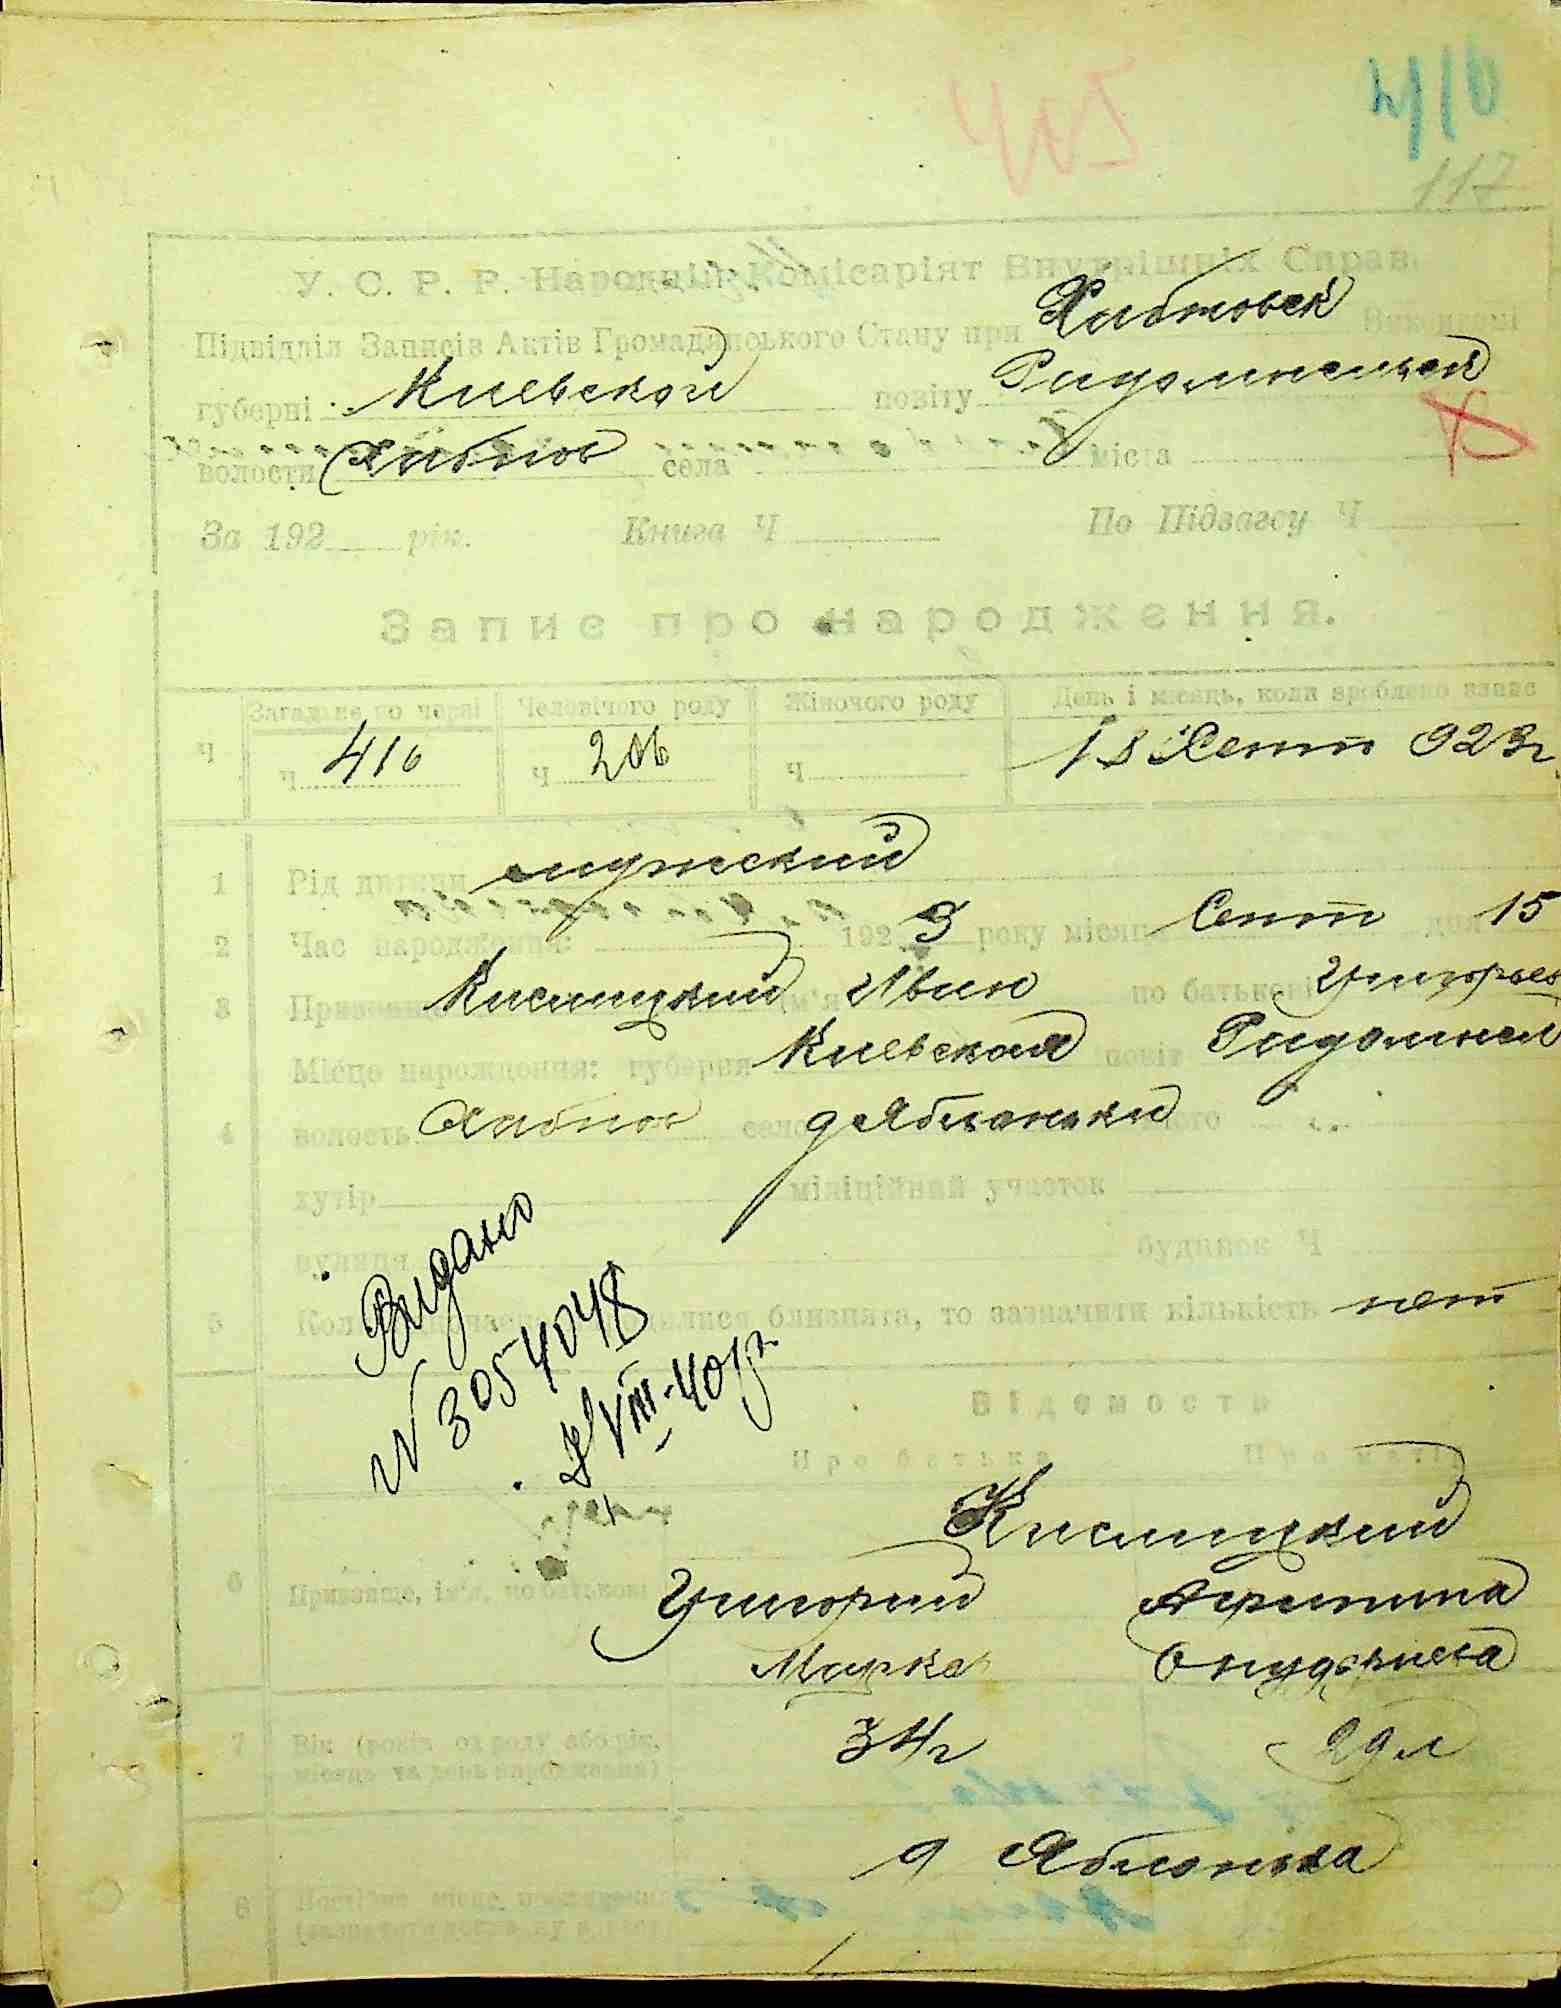 405 410
117
У. С. Р. Р. Народній Комісаріят Внутрішніх Справ.
Підвідділ Записів Актів Громадянського Стану при Хабновск Виконкомі
губерні Киевской повіту Радомысльской
волости Хабнов села міста
За 192 рік. Книга Ч По Підзагсу Ч
Запис про народження.
Загальне по черзі Чоловічого роду Жіночого роду День і місяць, коли зроблено запис
Ч Ч 416 Ч 206 Ч 18 Сент 923г.
1 Рід дитини мужский
2 Час народження: 1923 року місяця Сент дня 15
3 Прізвище Кислицкий ім'я Иван по батькові Григорьев
Місце народження: губерня Киевская повіт Радомысл
4 волость Хабнов село д Яблонька місто
хутір міліційний участок
вулиця будинок Ч
5 Коли одночасно народилися близнята, то зазначити кількість нет
Видано
N 3054048
VIII-40р
Відомости
Про батька Про матір
Кислицкий
6 Прізвище, ім'я, по батькові Григорий
Марков
7 Вік (років од роду або рік, місяць та день народження) 34г 29л
д Яблонька
8 Постійне місце